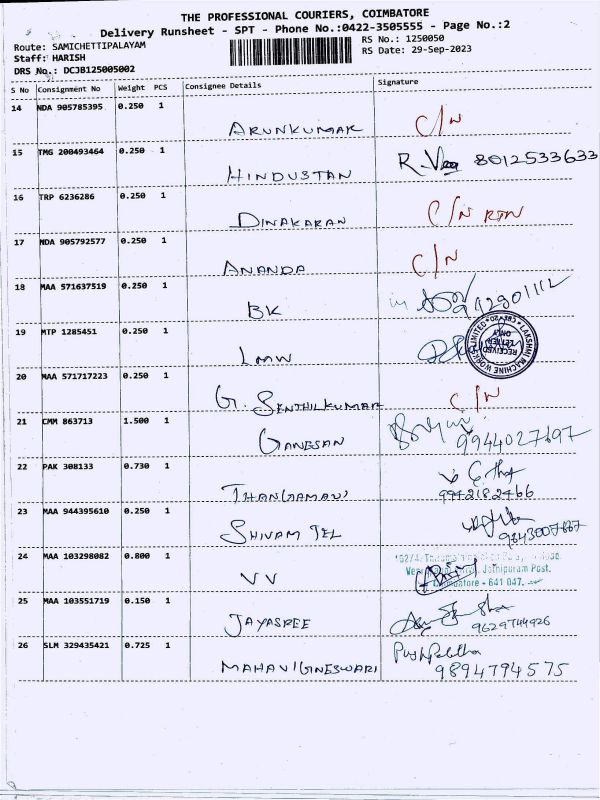 THE PROFESSIONAL COURIERS, COIMBATORE
Delivery Runsheet - SPT - Phone No.:0422-3505555 - Page No.:2
Route: SAMICHETTIPALAYAM
RS No.: 1250050
Staff: HARISH
RS Date: 29-Sep-2023
DRS No.: DCJB125005002
S No Consignment No Weight PCS Consignee Details Signature
14 NDA 905785395 0.250 1
ARUNKUMAR C/N
15 TMG 200493464 0.250 1
HINDUSTAN R. 8012533633
16 TRP 6236286 0.250 1
DINAKARAN C/N RTN
17 NDA 905792577 0.250 1
ANANDA C/N
18 MAA 571637519 0.250 1
BK
19 MTP 1285451 0.250 1
LMW
LAKSHMI MACHINE WORKS LIMITED
RECEIVED
LETTER
ONLY
20 MAA 571717223 0.250 1
G. SENTHILKUMAR C/N
21 CMM 863713 1.500 1
GANESAN 9944027697
22 PAK 308133 0.730 1
THANGAMANI 9942182466
23 MAA 944395610 0.250 1
SHIVAM TEL
24 MAA 103298082 0.800 1
VV
Jothipuram Post.
Coimbatore - 641 047.
25 MAA 103551719 0.150 1
JAYASREE 9629744926
26 SLM 329435421 0.725 1
MAHAVIGNESWARI Pushpalatha
9894794575